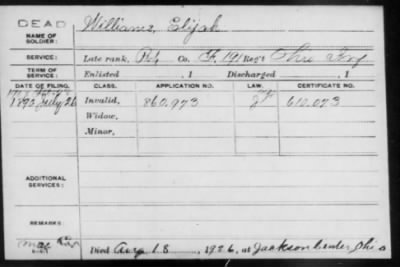 DEAD
NAME OF SOLDIER: Williams, Elijah
SERVICE: Late rank, Pvt Co. F, 191 Reg't Ohio Inf.
TERM OF SERVICE: Enlisted , 1 Discharged , 1
DATE OF FILING. CLASS. APPLICATION NO. LAW. CERTIFICATE NO.
1890 July 26 Invalid, 860,973 610,073
Widow,
Minor,
ADDITIONAL SERVICES:
REMARKS:
Died Aug 18, 1926, at Jackson Center, Ohio